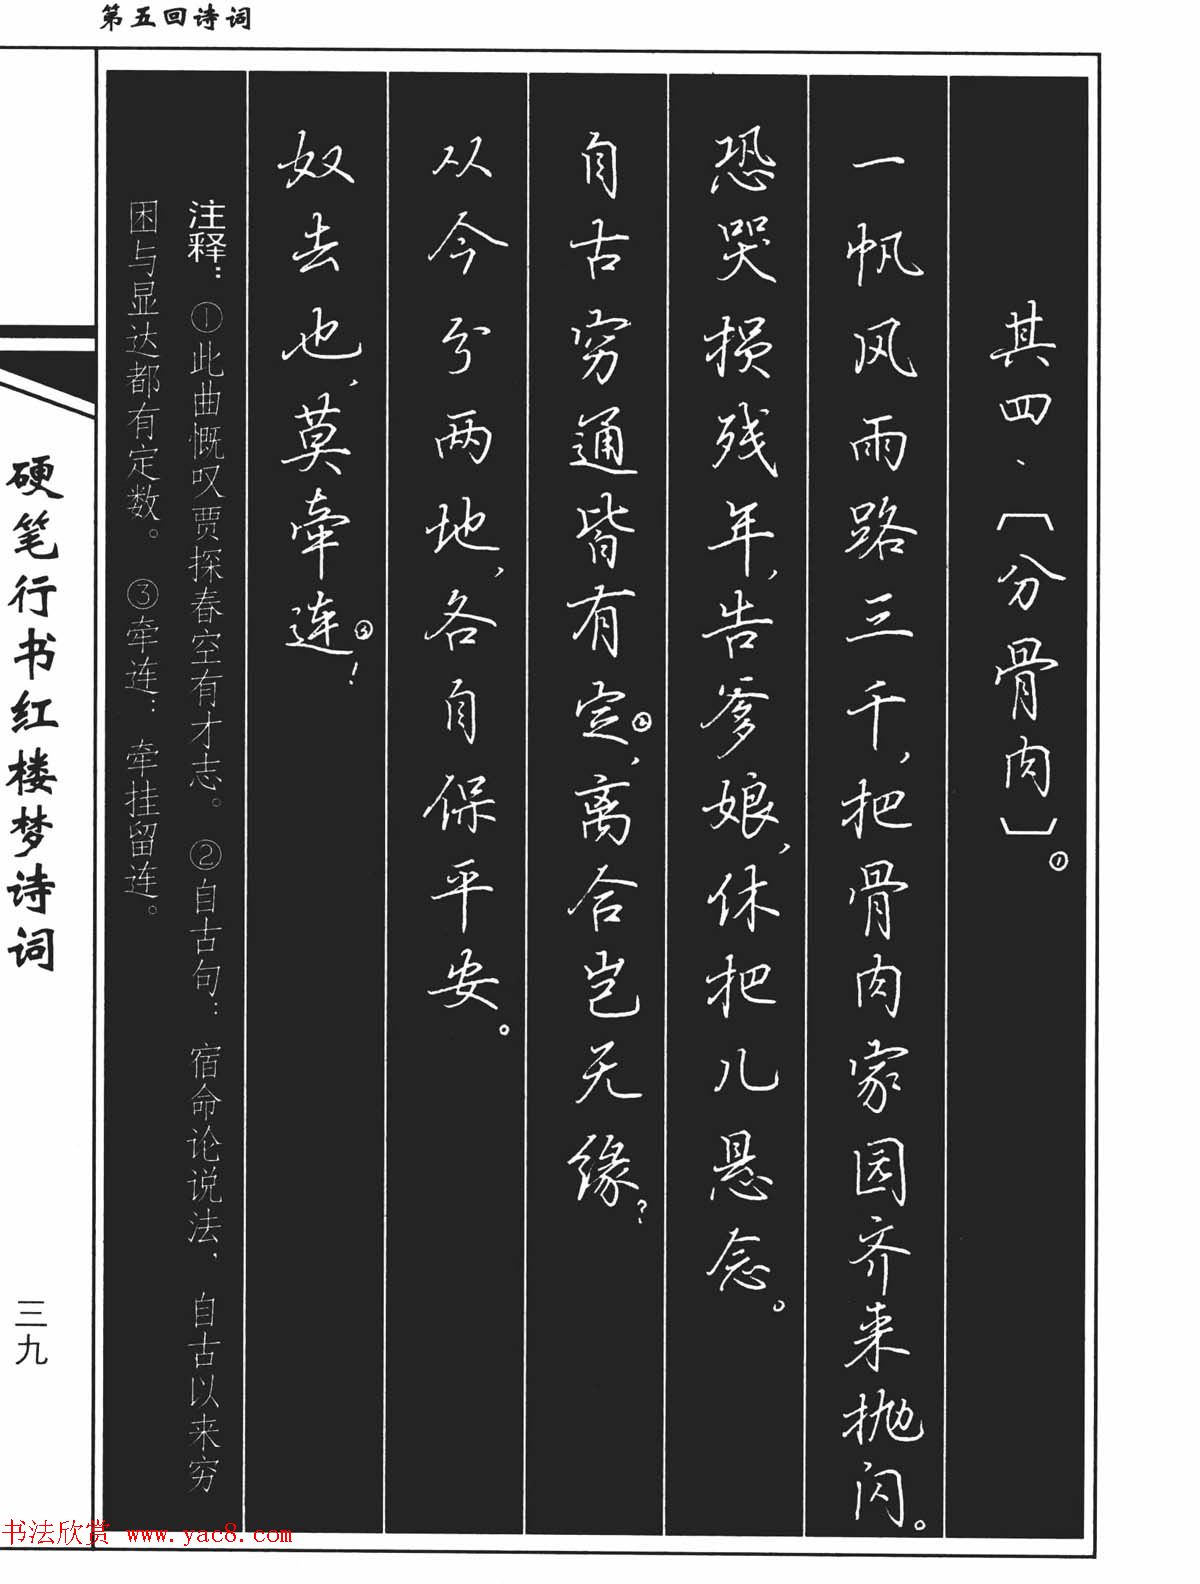 第五回诗词
其四·〔分骨肉〕①
一帆风雨路三千，把骨肉家园齐来抛闪。
恐哭损残年，告爹娘，休把儿悬念。
自古穷通皆有定②，离合岂无缘？
从今分两地，各自保平安。
奴去也，莫牵连③！
注释：①此曲慨叹贾探春空有才志。②自古句：宿命论说法，自古以来穷
困与显达都有定数。③牵连：牵挂留连。
硬笔行书红楼梦诗词
三九
书法欣赏 www.yac8.com